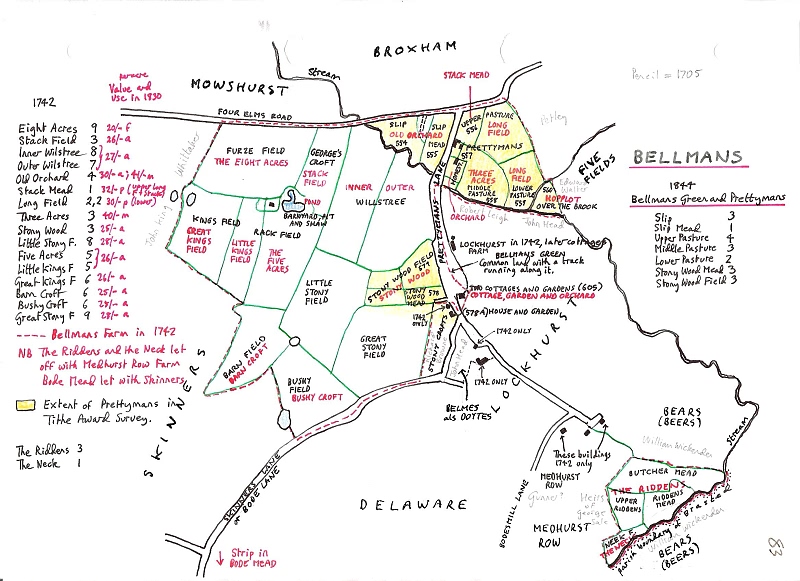 BROXHAM
MOWSHURST
Stream
STACK MEAD
Pencil = 1705
1742
Value and
use in 1830
Eight Acres 9 20/- f
Stack Field 3 26/- a
Inner Wilstree 8
Outer Wilstree 7
27/- a
Old Orchard 4 30/- a
Stack Mead 1 32/- p
Long Field 2,2 30/- p (lower)
Three Acres 3 40/- m
Stony Wood 3 25/- a
Little Stony F. 8 28/- a
Five Acres 5
Little Kings F 5
26/- a
Great Kings F 6 26/- a
Barn Croft 6 25/- a
Bushy Croft 6 23/- a
Great Stony F 9 28/- a
---- Bellmans Farm in 1742
NB The Riddens and the Neck let
off with Medhurst Row Farm
Bode Mead let with Skinners
Extent of Prettymans in
Tithe Award Survey.
The Riddens 3
The Neck 1
FOUR ELMS ROAD
FURZE FIELD
THE EIGHT ACRES
GEORGE'S
CROFT
STACK
FIELD
INNER
OUTER
WILLSTREE
POND
BARNYARD, PIT
AND SHAW
RACK FIELD
KINGS FIELD
GREAT
KINGS
FIELD
LITTLE
KINGS
FIELD
THE
FIVE
ACRES
LITTLE
STONY
FIELD
STONY WOOD FIELD
571
STONY WOOD
STONY
WOOD
MEAD
578
GREAT
STONY
FIELD
BARN FIELD
BARN CROFT
BUSHY
FIELD
BUSHY CROFT
John King
Whittaker
SLIP
OLD ORCHARD
554
SLIP
MEAD
555
UPPER
556
PASTURE
LONG
FIELD
PRETTYMANS
HOMESTEAD
557
THREE
ACRES
MIDDLE
PASTURE
558
LONG
FIELD
LOWER
PASTURE
559
560
HOPPLOT
OVER THE BROOK
Petley
Edward
Walter
FIVE
FIELDS
ORCHARD
Robert Leigh
John Head
PRETTYMANS LANE
LOCKHURST IN 1742, later cottages
FARM
BELLMANS GREEN
Common land with a track
running along it.
TWO COTTAGES AND GARDENS (605)
COTTAGE, GARDEN AND ORCHARD
(578A) HOUSE AND GARDEN
1742
ONLY
STONY CROFTS
1742 ONLY
1742 ONLY
BELMES
als DOYTES
LOCKHURST
SKINNERS
SKINNERS LANE
or BODE LANE
Strip in
BODE MEAD
DELAWARE
These buildings
1742 only
MEDHURST
ROW
BODESMILL LANE
Gunner?
MEDHURST
ROW
Heirs
of
George
Sale
BEARS
(BEERS)
William Wickenden
Stream
BUTCHER MEAD
THE RIDDENS
UPPER
RIDDENS
RIDDENS
MEAD
NECK F.
THE NECK
Parish boundary of Brasted
William Wickenden
BEARS
(BEERS)
BELLMANS
1844
Bellmans Green and Prettymans
Slip 3
Slip Mead 1
Upper Pasture 4
Middle Pasture 3
Lower Pasture 2
Stony Wood Mead 3
Stony Wood Field 3
83